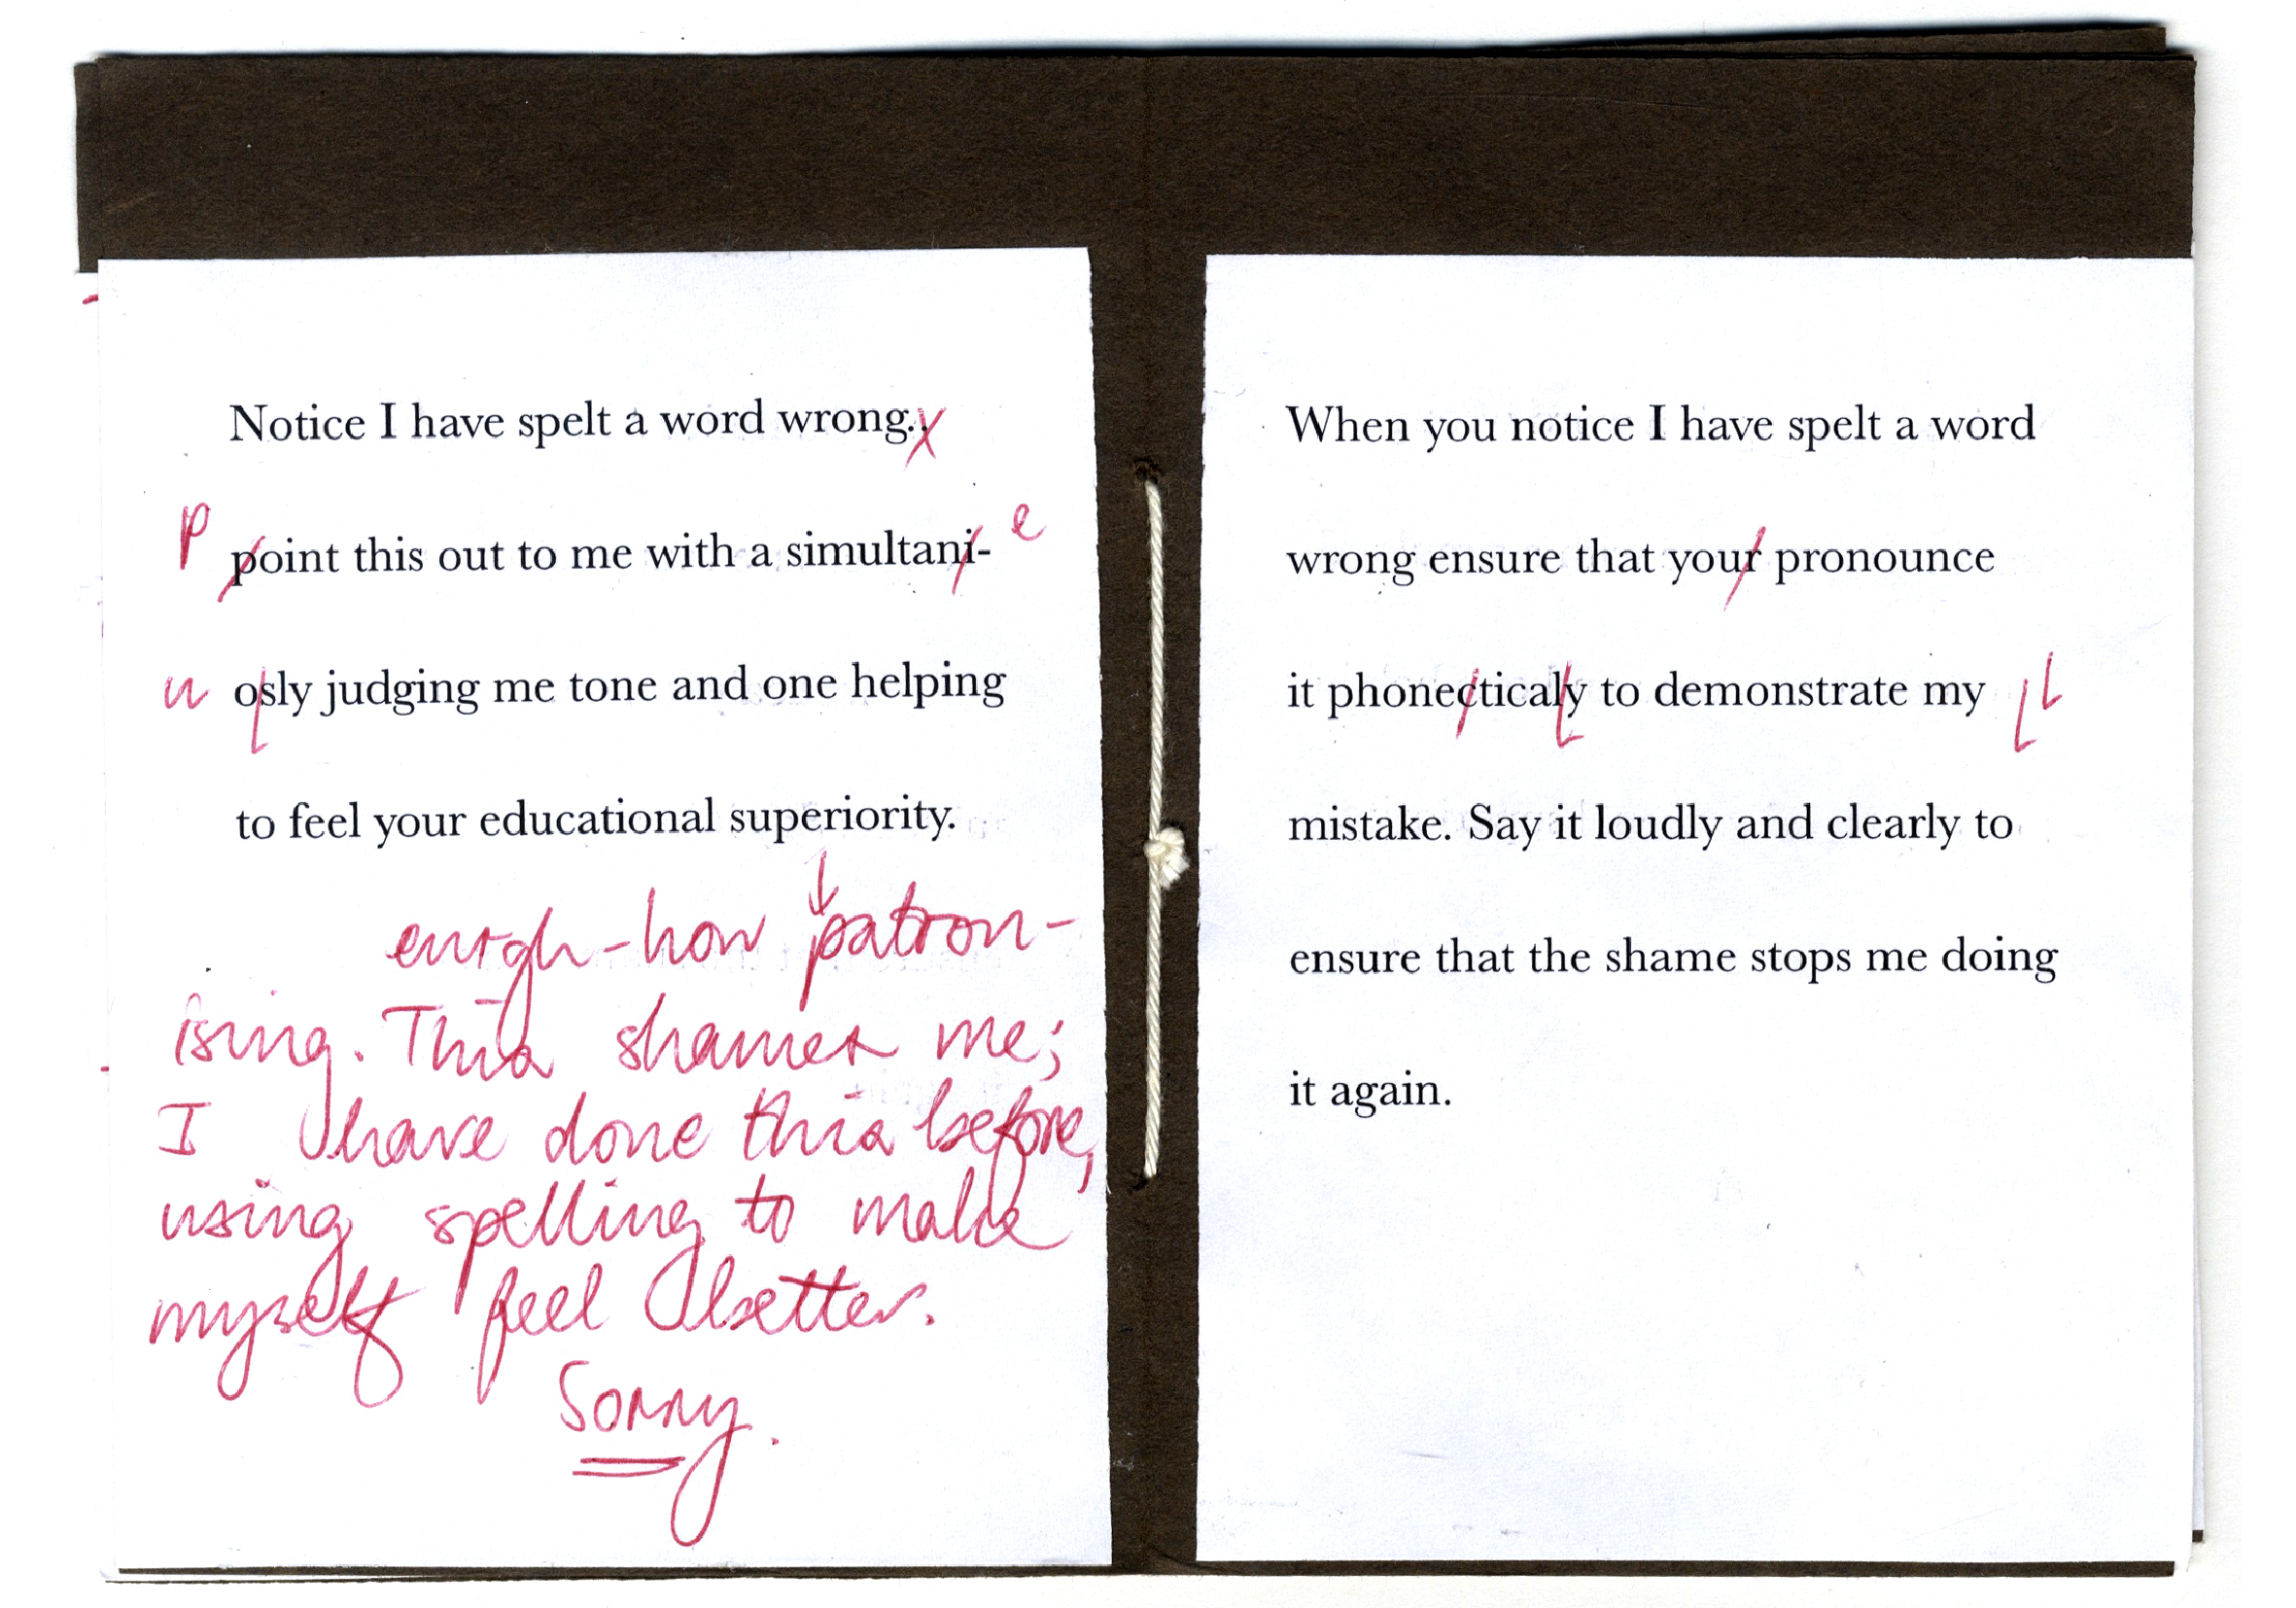 Notice I have spelt a word wrong.
p point this out to me with a simultani- e
u osly judging me tone and one helping
to feel your educational superiority.
eurgh - how patron-
ising. This shames me;
I have done this before,
using spelling to make
myself feel better.
Sorry.
When you notice I have spelt a word
wrong ensure that your pronounce
it phonecticaly to demonstrate my
mistake. Say it loudly and clearly to
ensure that the shame stops me doing
it again.